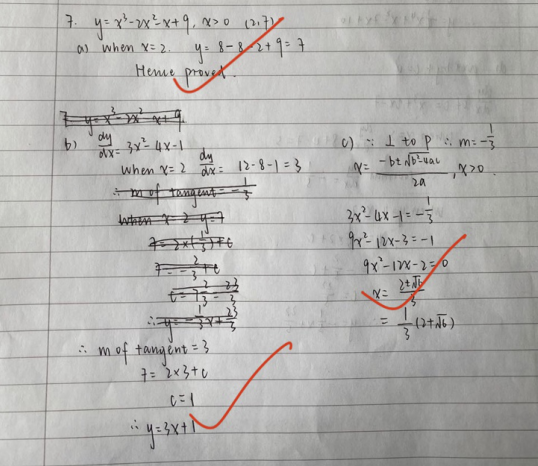 7. y=x³-2x²-x+9, x>0 (2,7)
a) when x=2. y=8-8-2+9=7
Hence proved.
7 y=x³-2x²-x+9
b) dy/dx=3x²-4x-1
when x=2 dy/dx= 12-8-1=3
∴ m of tangent=-1/3
when x=2 y=7
7=2×(-1/3)+c
7=-2/3+c
∴ y=-1/3x+23/3
∴ m of tangent=3
7=2×3+c
c=1
∴ y=3x+1
c) ∵ ⊥ to P ∴ m=-1/3
x=(-b±√b²-4ac)/2a, x>0.
3x²-4x-1=-1/3
9x²-12x-3=-1
9x²-12x-2=0
x=(2±√6)/3
=1/3(2+√6)